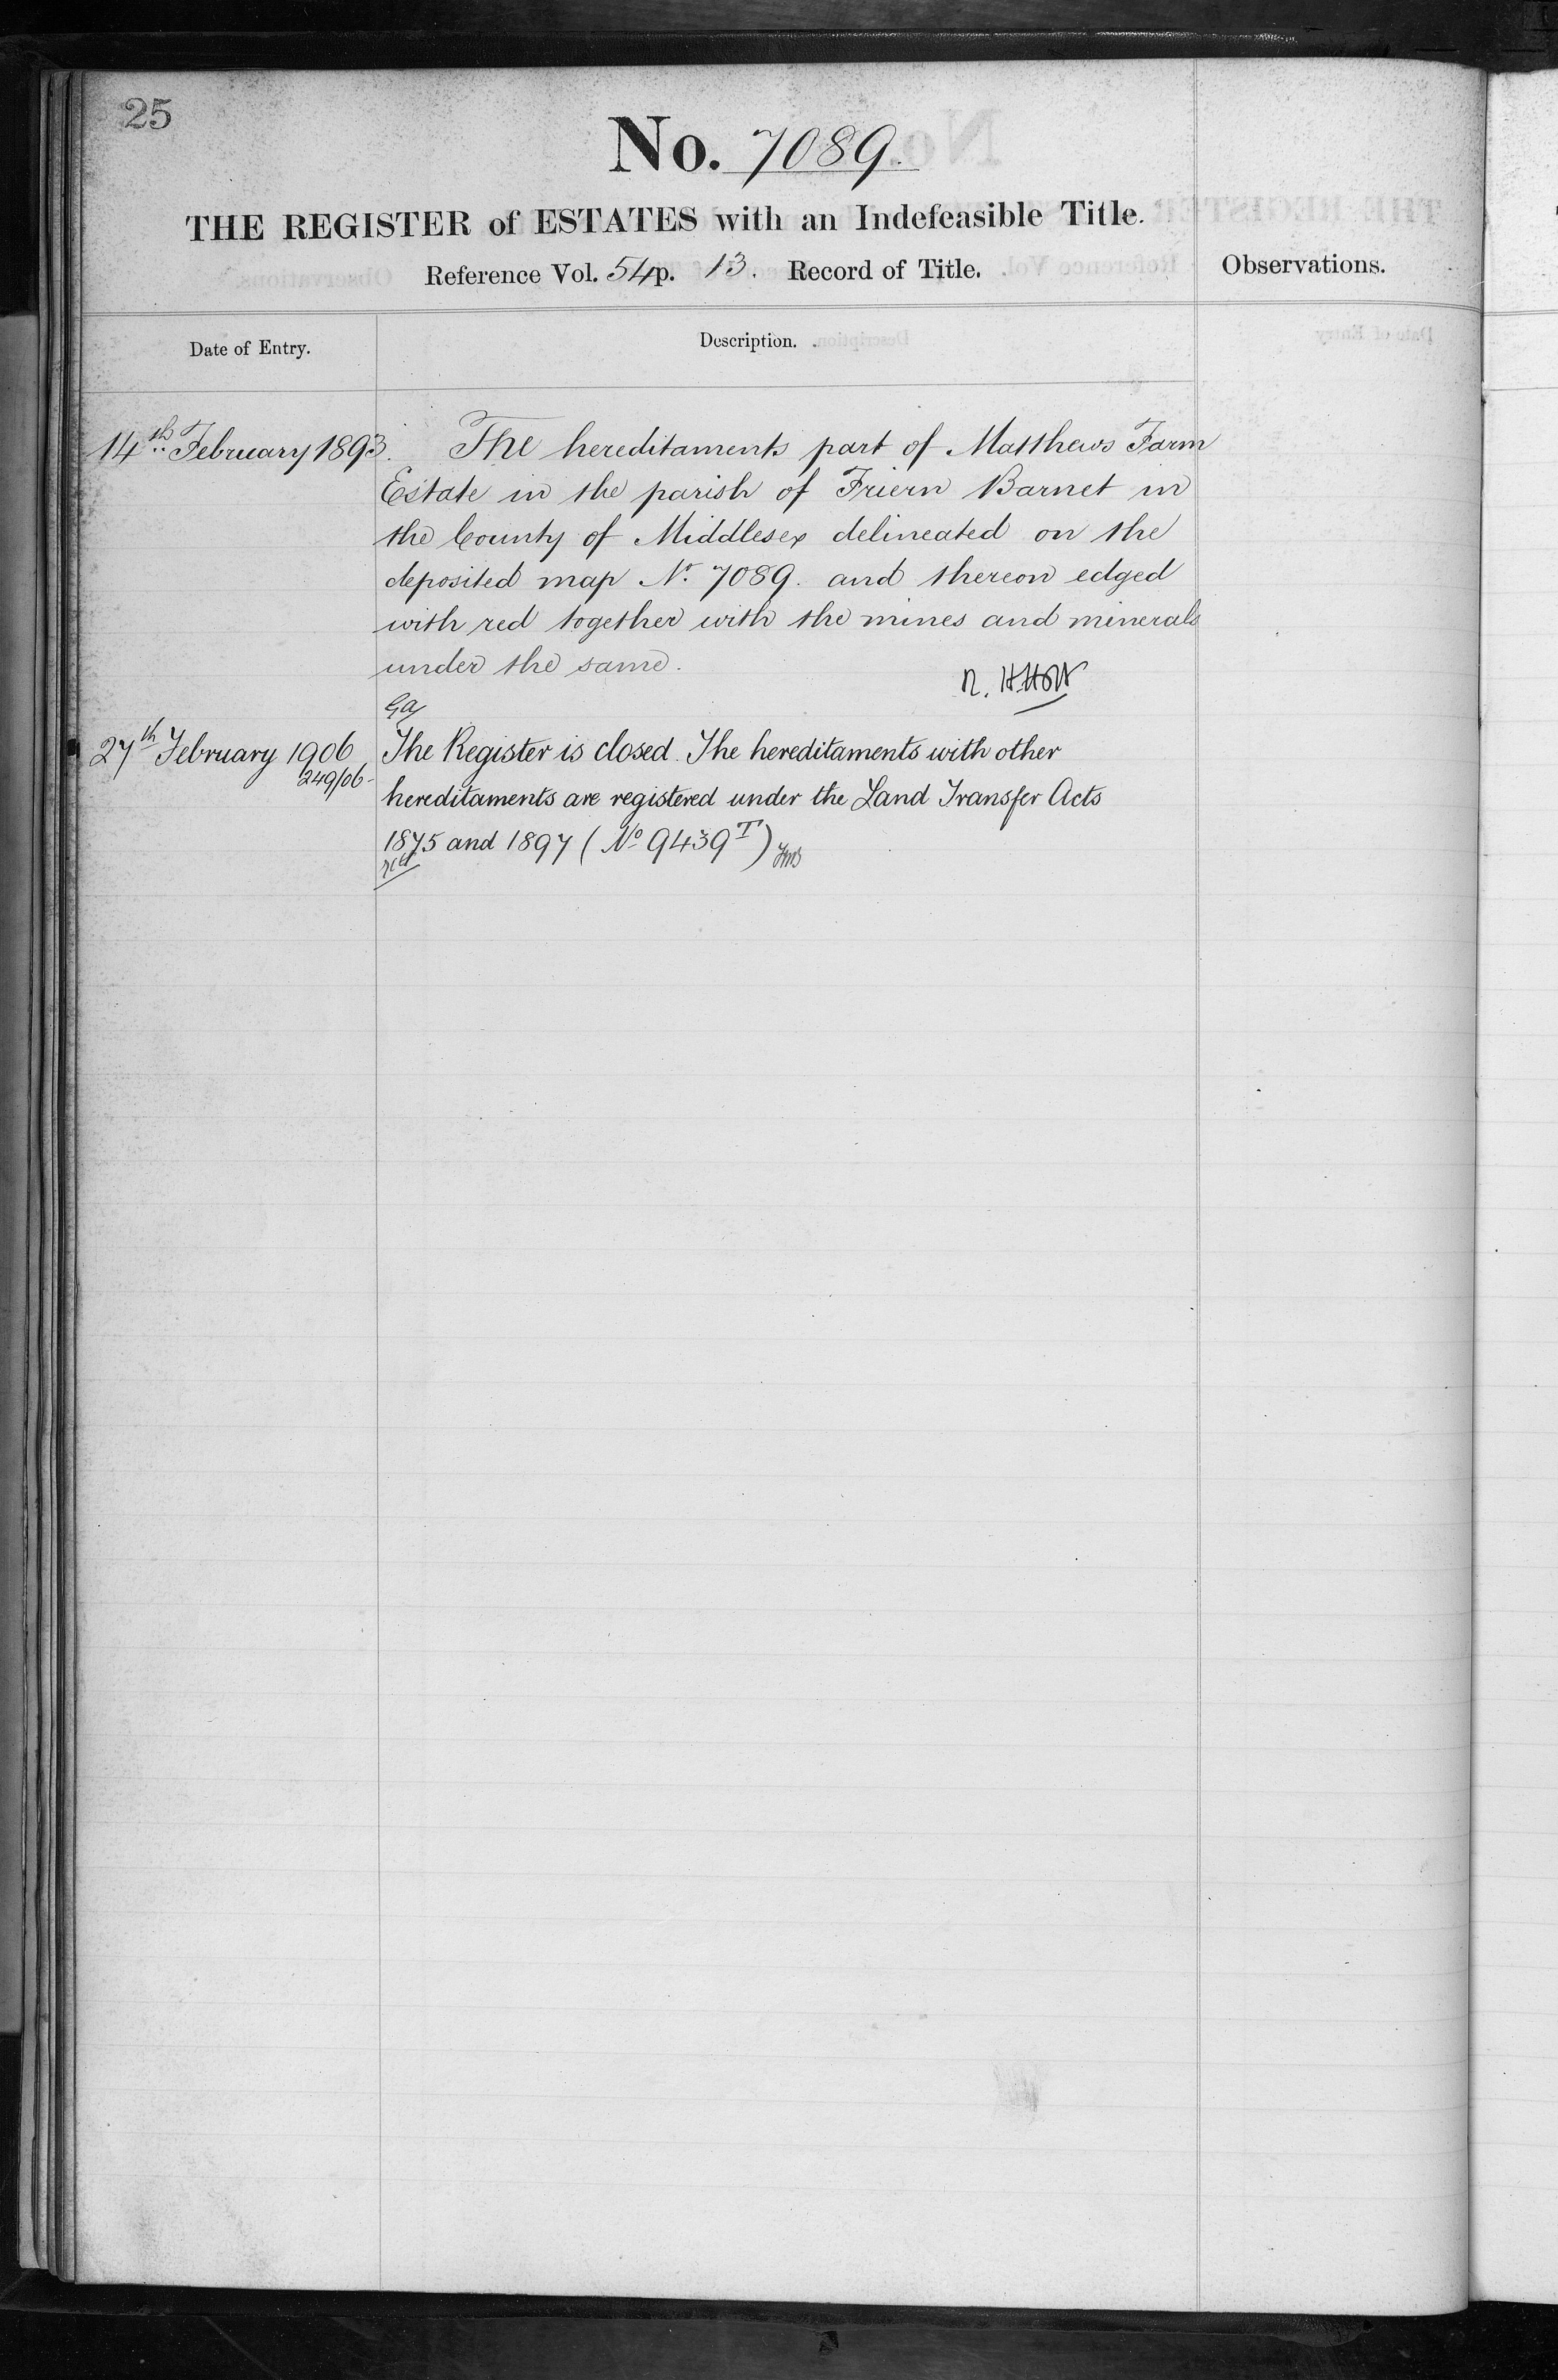 25
No. 7089.
THE REGISTER of ESTATES with an Indefeasible Title.
Reference Vol. 54 p. 13. Record of Title.
Observations.
Date of Entry.
Description.
14th February 1893.
The hereditaments part of Matthews Farm
Estate in the parish of Friern Barnet in
the County of Middlesex delineated on the
deposited map No. 7089. and thereon edged
with red together with the mines and minerals
under the same.
27th February 1906
249/06
The Register is closed. The hereditaments with other
hereditaments are registered under the Land Transfer Acts
1875 and 1897 (No 9439T)